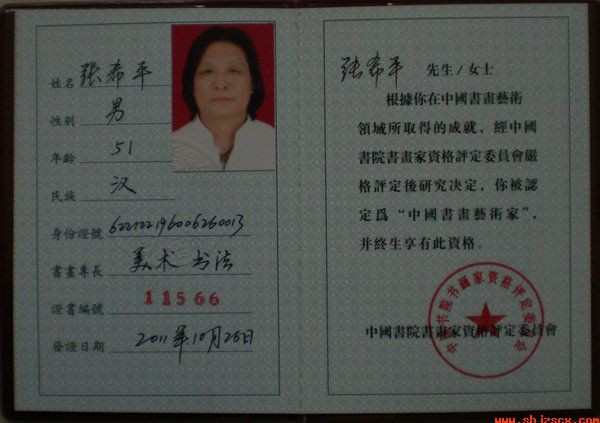 姓名 张希平
性别 男
年齡 51
民族 汉
身份證號 622122196006260013
書畫專長 美术 书法
證書編號 11566
發證日期 2011年10月26日
张希平 先生/女士
根據你在中國書畫藝術
領域所取得的成就，經中國
書院書畫家資格評定委員會嚴
格評定後研究決定，你被認
定爲“中國書畫藝術家”，
并終生享有此資格。
中國書院書畫家資格評定委員會